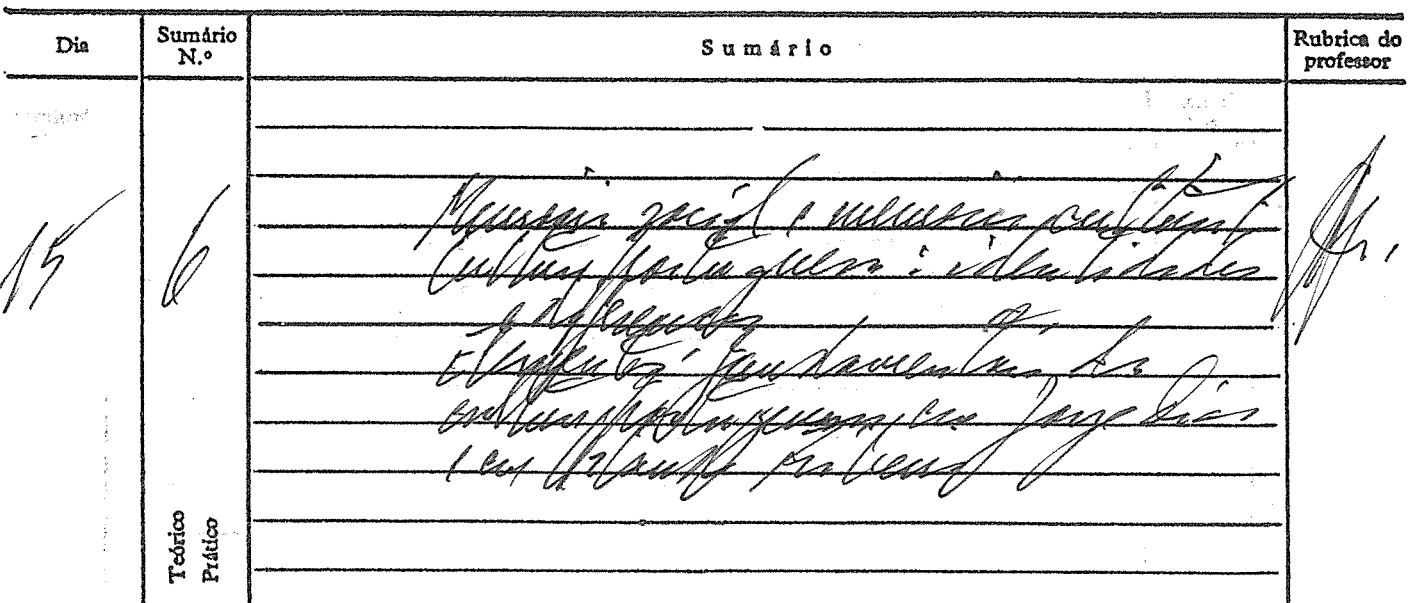 Dia
Sumário N.º
Sumário
Rubrica do professor
15
6
Memória social e memória cultural
Cultura portuguesa: identidades
e diferenças
Elementos fundamentais da
cultura portuguesa, em Jorge Dias
e em
Teórico
Prático